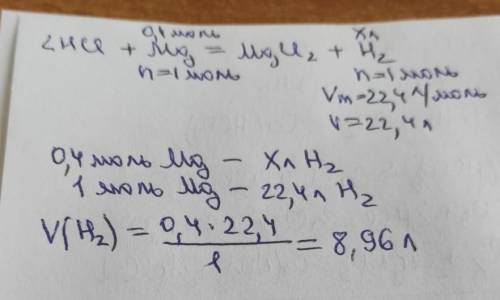 0,4 моль      xл
2HCl + Mg = MgCl₂ + H₂
n=1 моль      n=1 моль
Vm=22,4 л/моль
V=22,4 л
0,4 моль Mg – Xл H₂
1 моль Mg – 22,4 л H₂
V(H₂) = 0,4·22,4 / 1 = 8,96 л